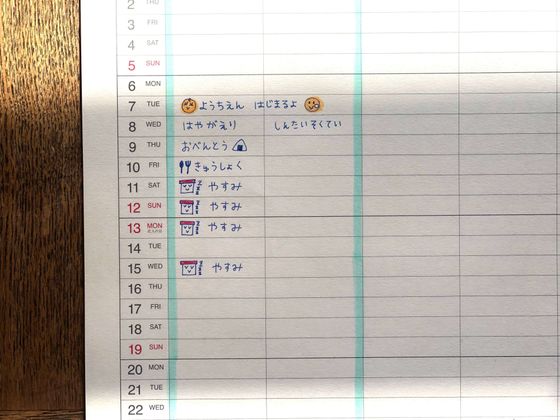 2 THU
3 FRI
4 SAT
5 SUN
6 MON
7 TUE ようちえん はじまるよ
8 WED はやがえり しんたいそくてい
9 THU おべんとう
10 FRI きゅうしょく
11 SAT やすみ
12 SUN やすみ
13 MON やすみ
14 TUE
15 WED やすみ
16 THU
17 FRI
18 SAT
19 SUN
20 MON
21 TUE
22 WED